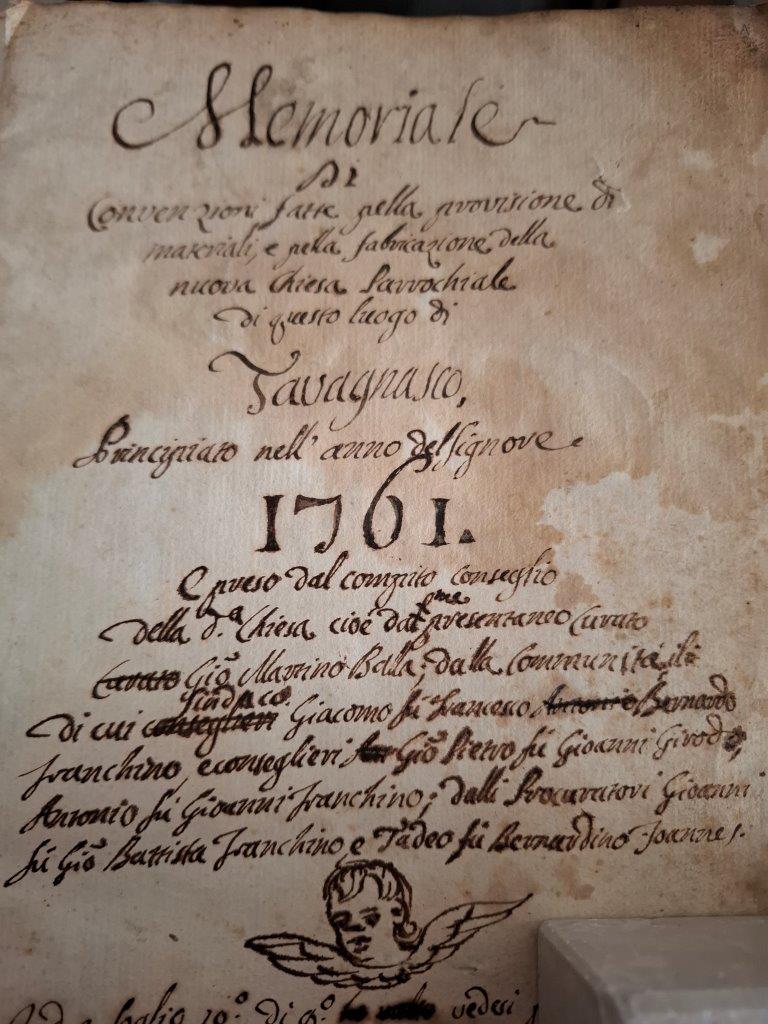 Memoriale
Di
Convenzioni fatte nella provisione di
materiali, e nella fabricazione della
nuova Chiesa Parrochiale
di questo luogo di
Tavagnasco,
Principiato nell' anno del Signore
1761.
E preso dal compito conseglio
della d.a Chiesa cioè dal presentaneo Curato
Curato Gio. Martino Balla, dalla Communità
sindaco
di cui conseglieri Giacomo fù Francesco Antonio Bernardo
Franchino, e conseglieri Gio Pietro fù Gioanni Girodo,
Antonio fù Gioanni Franchino; dalli Procuratori Gioanni
fù Gio Battista Franchino e Tadeo fù Bernardino Joannes.
foglio 10° di vedesi